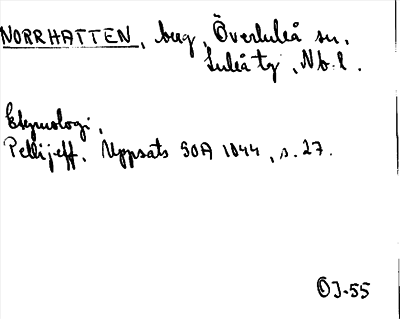 NORRHATTEN, berg, Överluleå sn,
Luleå tg, Nb. l.
Etymologi,
Pellijeff, Uppsats SOA 1044, s. 27.
OJ-55